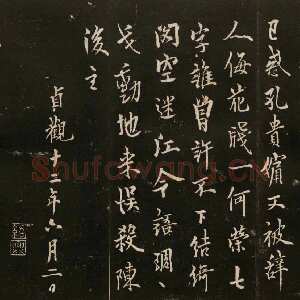 已惑孔貴嬪又被辭
人侮花牋何榮七
字誰曾許不下結綺
閣空迷江令語琱
戈動地來悮殺陳
後主
貞觀十二年六月二日
Shufawang.CN